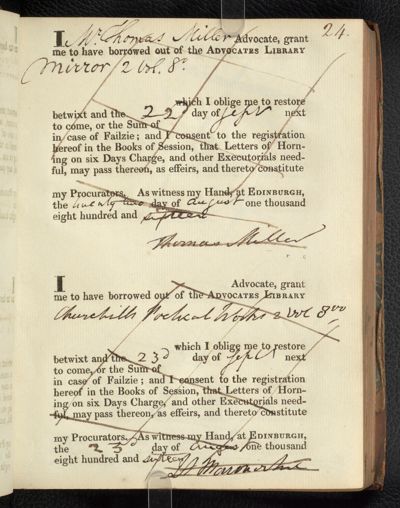 24.
I Mr. Thomas Miller Advocate, grant
me to have borrowed out of the ADVOCATES LIBRARY
Mirror 2 vol. 8o.
which I oblige me to restore
betwixt and the 22d day of Septr next
to come, or the Sum of
in case of Failzie; and I consent to the registration
hereof in the Books of Session, that Letters of Horn-
ing on six Days Charge, and other Executorials need-
ful, may pass thereon, as effeirs, and thereto constitute
my Procurators. As witness my Hand, at EDINBURGH,
the twenty two day of August one thousand
eight hundred and sixteen
Thomas Miller
I Advocate, grant
me to have borrowed out of the ADVOCATES LIBRARY
Churchills Poetical Works 2 vol 8vo
which I oblige me to restore
betwixt and the 23d day of Septr next
to come, or the Sum of
in case of Failzie; and I consent to the registration
hereof in the Books of Session, that Letters of Horn-
ing on six Days Charge, and other Executorials need-
ful, may pass thereon, as effeirs, and thereto constitute
my Procurators. As witness my Hand, at EDINBURGH,
the 23d day of August one thousand
eight hundred and sixteen